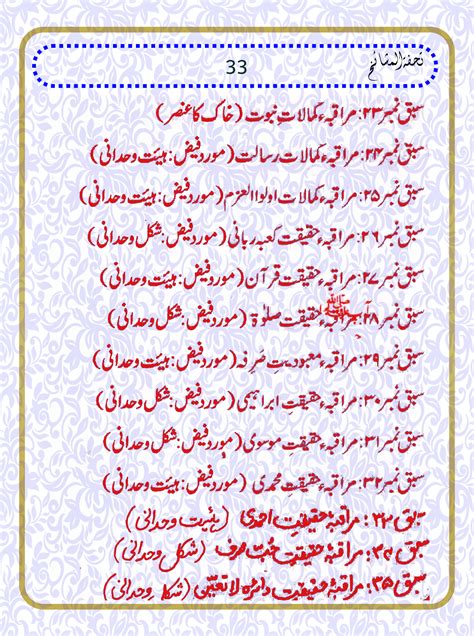 تحفۃ المشائخ
33
سبق نمبر ۲۳: مراقبہء کمالاتِ نبوت (خاک کا عنصر)
سبق نمبر ۲۴: مراقبہء کمالاتِ رسالت (مورد فیض: ہیئت وحدانی)
سبق نمبر ۲۵: مراقبہء کمالاتِ اولوا العزم (مورد فیض: ہیئت وحدانی)
سبق نمبر ۲۶: مراقبہء حقیقت کعبہ ربانی (مورد فیض: شکل وحدانی)
سبق نمبر ۲۷: مراقبہء حقیقت قرآن (مورد فیض: ہیئت وحدانی)
سبق نمبر ۲۸: مراقبہء حقیقت صلوٰۃ (مورد فیض: شکل وحدانی)
سبق نمبر ۲۹: مراقبہء معبودیتِ صرفہ (مورد فیض: ہیئت وحدانی)
سبق نمبر ۳۰: مراقبہء حقیقتِ ابراہیمی (مورد فیض: شکل وحدانی)
سبق نمبر ۳۱: مراقبہء حقیقتِ موسوی (مورد فیض: شکل وحدانی)
سبق نمبر ۳۲: مراقبہء حقیقتِ محمدی (مورد فیض: ہیئت وحدانی)
سبق ۳۳: مراقبۂ حقیقتِ احمدی (ہیئیت وحدانی)
سبق ۳۴: مراقبۂ حقیقتِ حُبّ صرف (شکل وحدانی)
سبق ۳۵: مراقبۂ حقیقت دائرہ لا تعیّنی (شکل وحدانی)